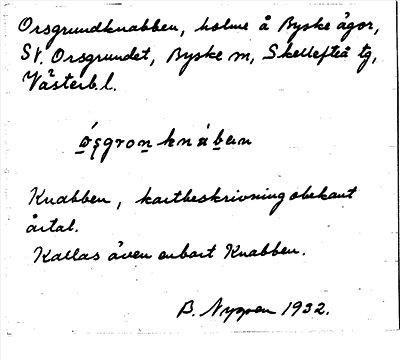 Orsgrundknabben, holme å Byske ägor,
St. Orsgrundet, Byske m, Skellefteå tg,
Västerb.l.
Knabben, kartbeskrivning obekant
årtal.
Kallas även enbart Knabben.
B. Nygren 1932.